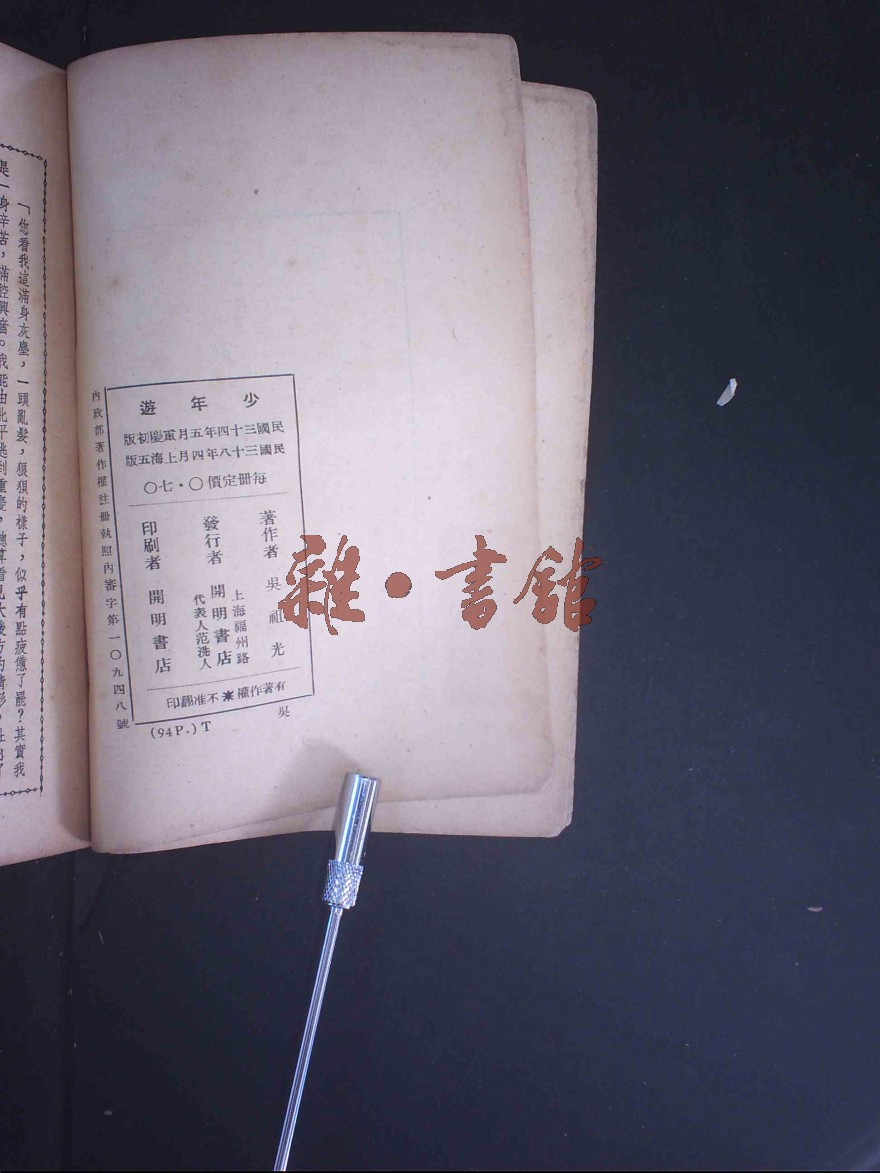 少年遊
民國三十四年五月重慶初版
民國三十八年四月上海五版
每冊定價〇·七〇
著作者 吳祖光
發行者 上海福州路 開明書店 代表人范洗人
印刷者 開明書店
有著作權※不准翻印
內政部著作權註冊執照內審字第一〇九四八號
(94P.)T
吳
「你看我這滿身灰塵，一頭亂髮，狼狽的樣子，似乎有點疲憊了罷？其實我
是一身辛苦，滿腔興奮。我能由北平逃到重慶，總算看見大後方的情形，
雜·書館